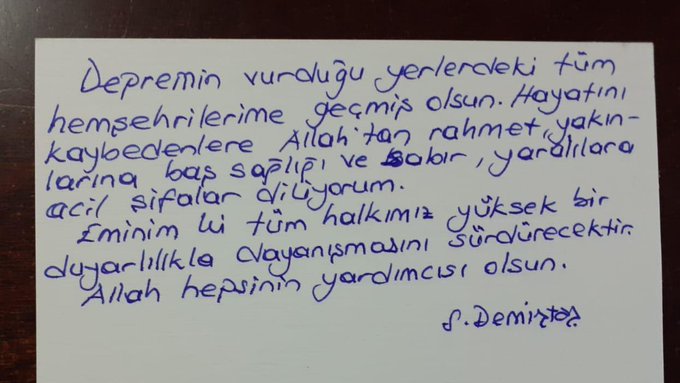 Depremin vurduğu yerlerdeki tüm
hemşehrilerime geçmiş olsun. Hayatını
kaybedenlere Allah'tan rahmet, yakın-
larına baş sağlığı ve sabır, yaralılara
acil şifalar diliyorum.
Eminim ki tüm halkımız yüksek bir
duyarlılıkla dayanışmasını sürdürecektir.
Allah hepsinin yardımcısı olsun.
S. Demirtaş